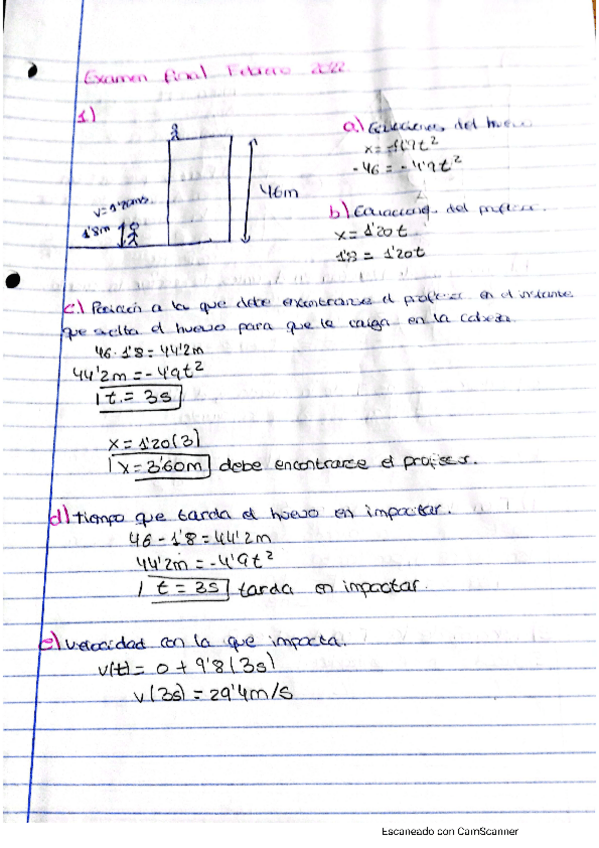 Examen final Febrero 2022
1)
a) Ecuaciones del huevo
x = -4'9t²
-46 = -4'9t²
46m
v=1'20m/s
1'8m
b) Ecuaciones del profesor.
x = 1'20t
1'8 = 1'20t
c) Posición a la que debe encontrarse el profesor en el instante
que suelta el huevo para que le caiga en la cabeza.
46-1'8 = 44'2m
44'2m = -4'9t²
t = 3s
x = 1'20(3)
x = 3'60m debe encontrarse el profesor.
d) tiempo que tarda el huevo en impactar.
46 - 1'8 = 44'2m
44'2m = -4'9t²
t = 3s tarda en impactar.
e) velocidad con la que impacta.
v(t) = 0 + 9'8(3s)
v(3s) = 29'4m/s
Escaneado con CamScanner